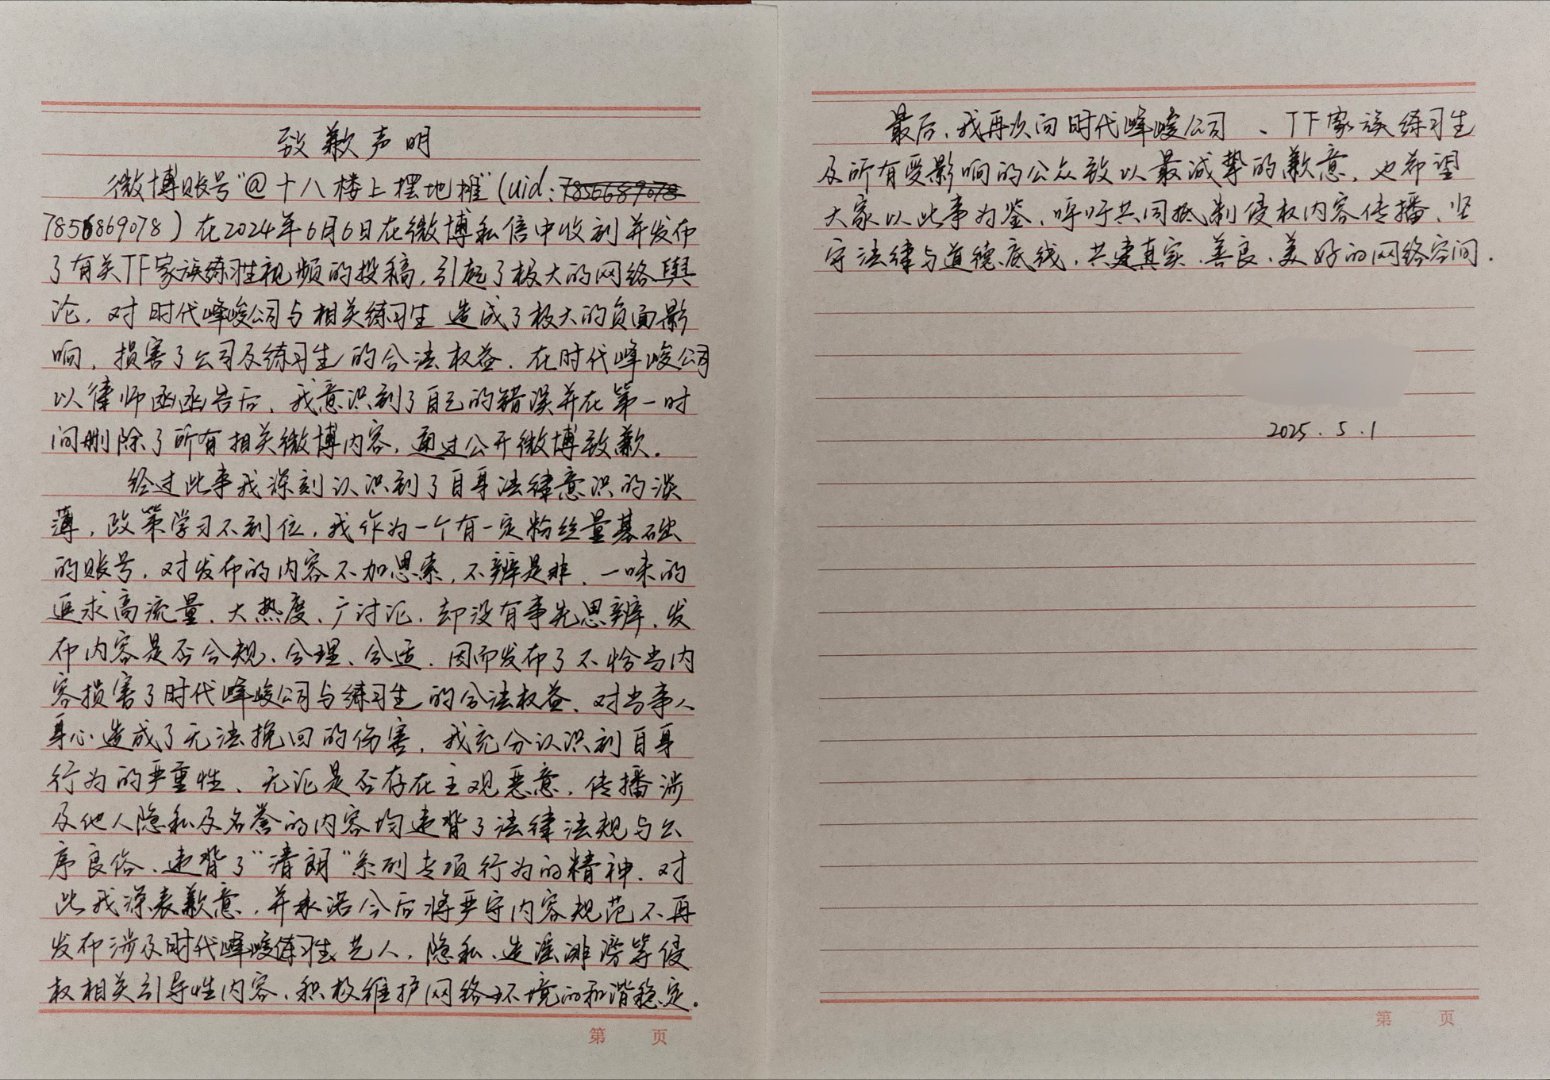 致歉声明
微博账号"@十八楼上摆地摊"(uid:7856689078
7856869078)在2024年6月6日在微博私信中收到并发布
了有关TF家族练习生视频的投稿,引起了极大的网络舆
论,对时代峰峻公司与相关练习生造成了极大的负面影
响,损害了公司及练习生的合法权益.在时代峰峻公司
以律师函函告后,我意识到了自己的错误并在第一时
间删除了所有相关微博内容,通过公开微博致歉.
经过此事我深刻认识到了自身法律意识的淡
薄,政策学习不到位,我作为一个有一定粉丝量基础
的账号,对发布的内容不加思索,不辨是非,一味的
追求高流量、大热度、广讨论,却没有事先思辨,发
布内容是否合规、合理、合适.因而发布了不恰当内
容损害了时代峰峻公司与练习生的合法权益、对当事人
身心造成了无法挽回的伤害,我充分认识到自身
行为的严重性、无论是否存在主观恶意,传播涉
及他人隐私及名誉的内容均违背了法律法规与公
序良俗、违背了"清朗"系列专项行为的精神.对
此我深表歉意,并承诺今后将严守内容规范不再
发布涉及时代峰峻练习生艺人,隐私、造谣诽谤等侵
权相关引导性内容、积极维护网络环境的和谐稳定.
第 页
最后,我再次向时代峰峻公司、TF家族练习生
及所有受影响的公众致以最诚挚的歉意,也希望
大家以此事为鉴,呼吁共同抵制侵权内容传播、坚
守法律与道德底线,共建真实、善良、美好的网络空间.
2025.5.1
第 页